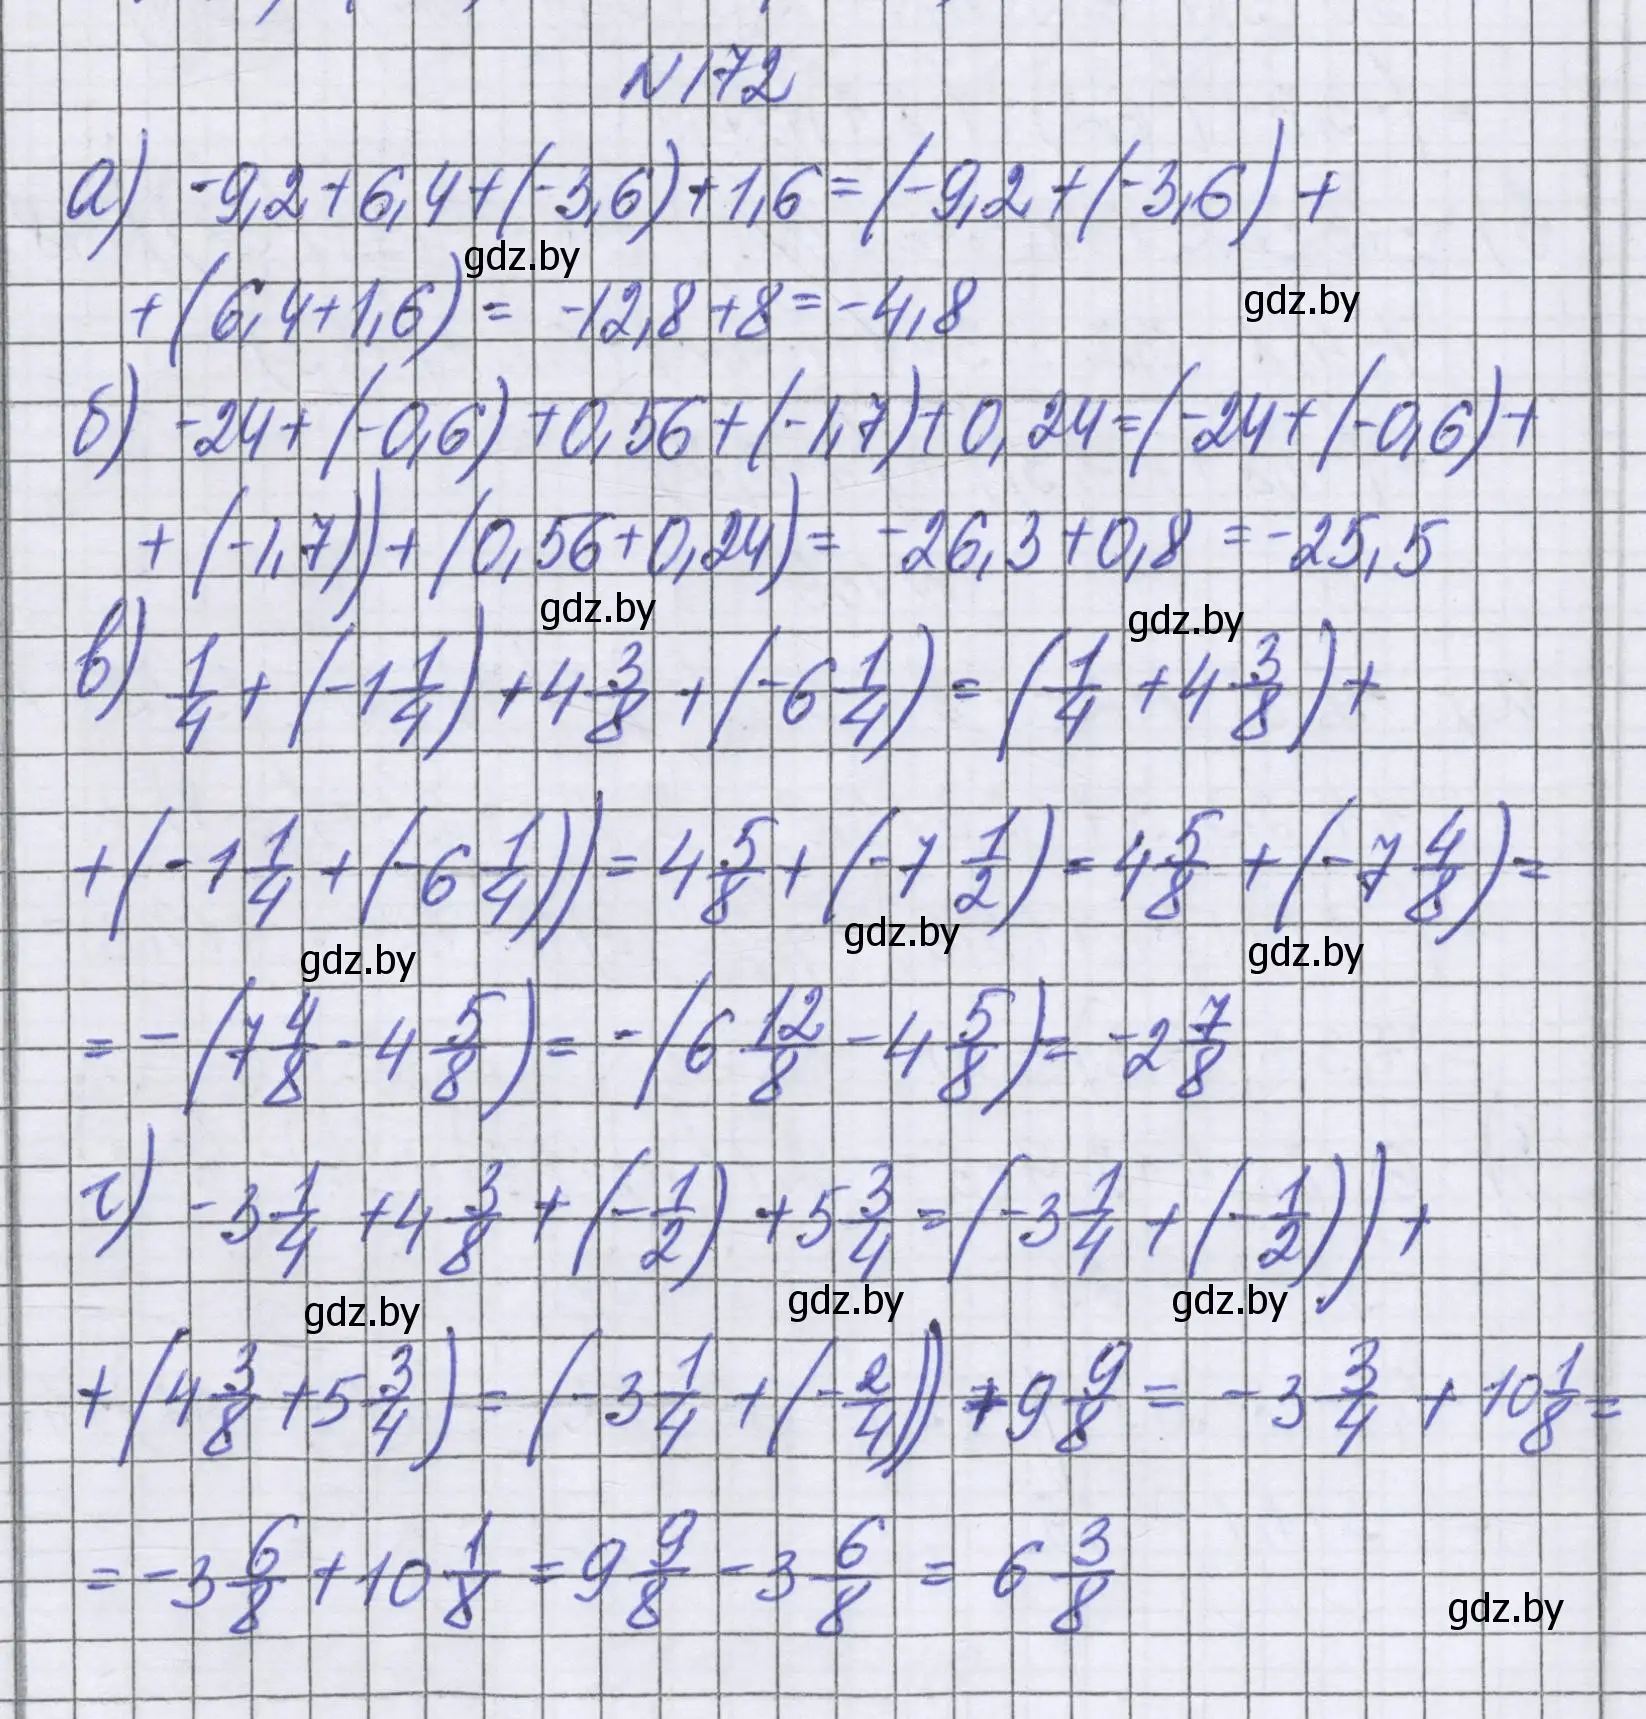 N 172
а) -9,2+6,4+(-3,6)+1,6=(-9,2+(-3,6)+
gdz.by
+(6,4+1,6)= -12,8+8=-4,8
gdz.by
б) -24+(-0,6)+0,56+(-1,7)+0,24=(-24+(-0,6)+
+(-1,7))+(0,56+0,24)= -26,3+0,8=-25,5
gdz.by gdz.by
в) 1/4+(-1 1/4)+4 3/8+(-6 1/4)=(1/4+4 3/8)+
+(-1 1/4+(-6 1/4))=4 5/8+(-7 1/2)=4 5/8+(-7 4/8)=
gdz.by gdz.by gdz.by
=-(7 4/8-4 5/8)=-(6 12/8-4 5/8)=-2 7/8
г) -3 1/4+4 3/8+(-1/2)+5 3/4=(-3 1/4+(-1/2))+
gdz.by gdz.by gdz.by
+(4 3/8+5 3/4)=(-3 1/4+(-2/4))+9 9/8=-3 3/4+10 1/8=
=-3 6/8+10 1/8=9 9/8-3 6/8=6 3/8
gdz.by